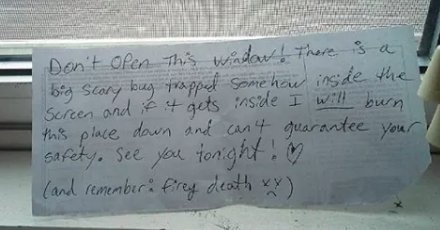 Don't Open This window! There is a
big scary bug trapped somehow inside the
screen and if it gets inside I will burn
this place down and can't guarantee your
safety. See you tonight! ♡
(and remember: firey death x_x)